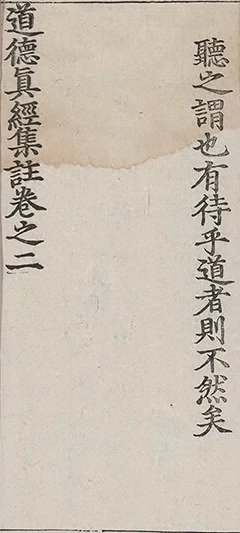 聽之謂也有待乎道者則不然矣
道德眞經集註卷之二